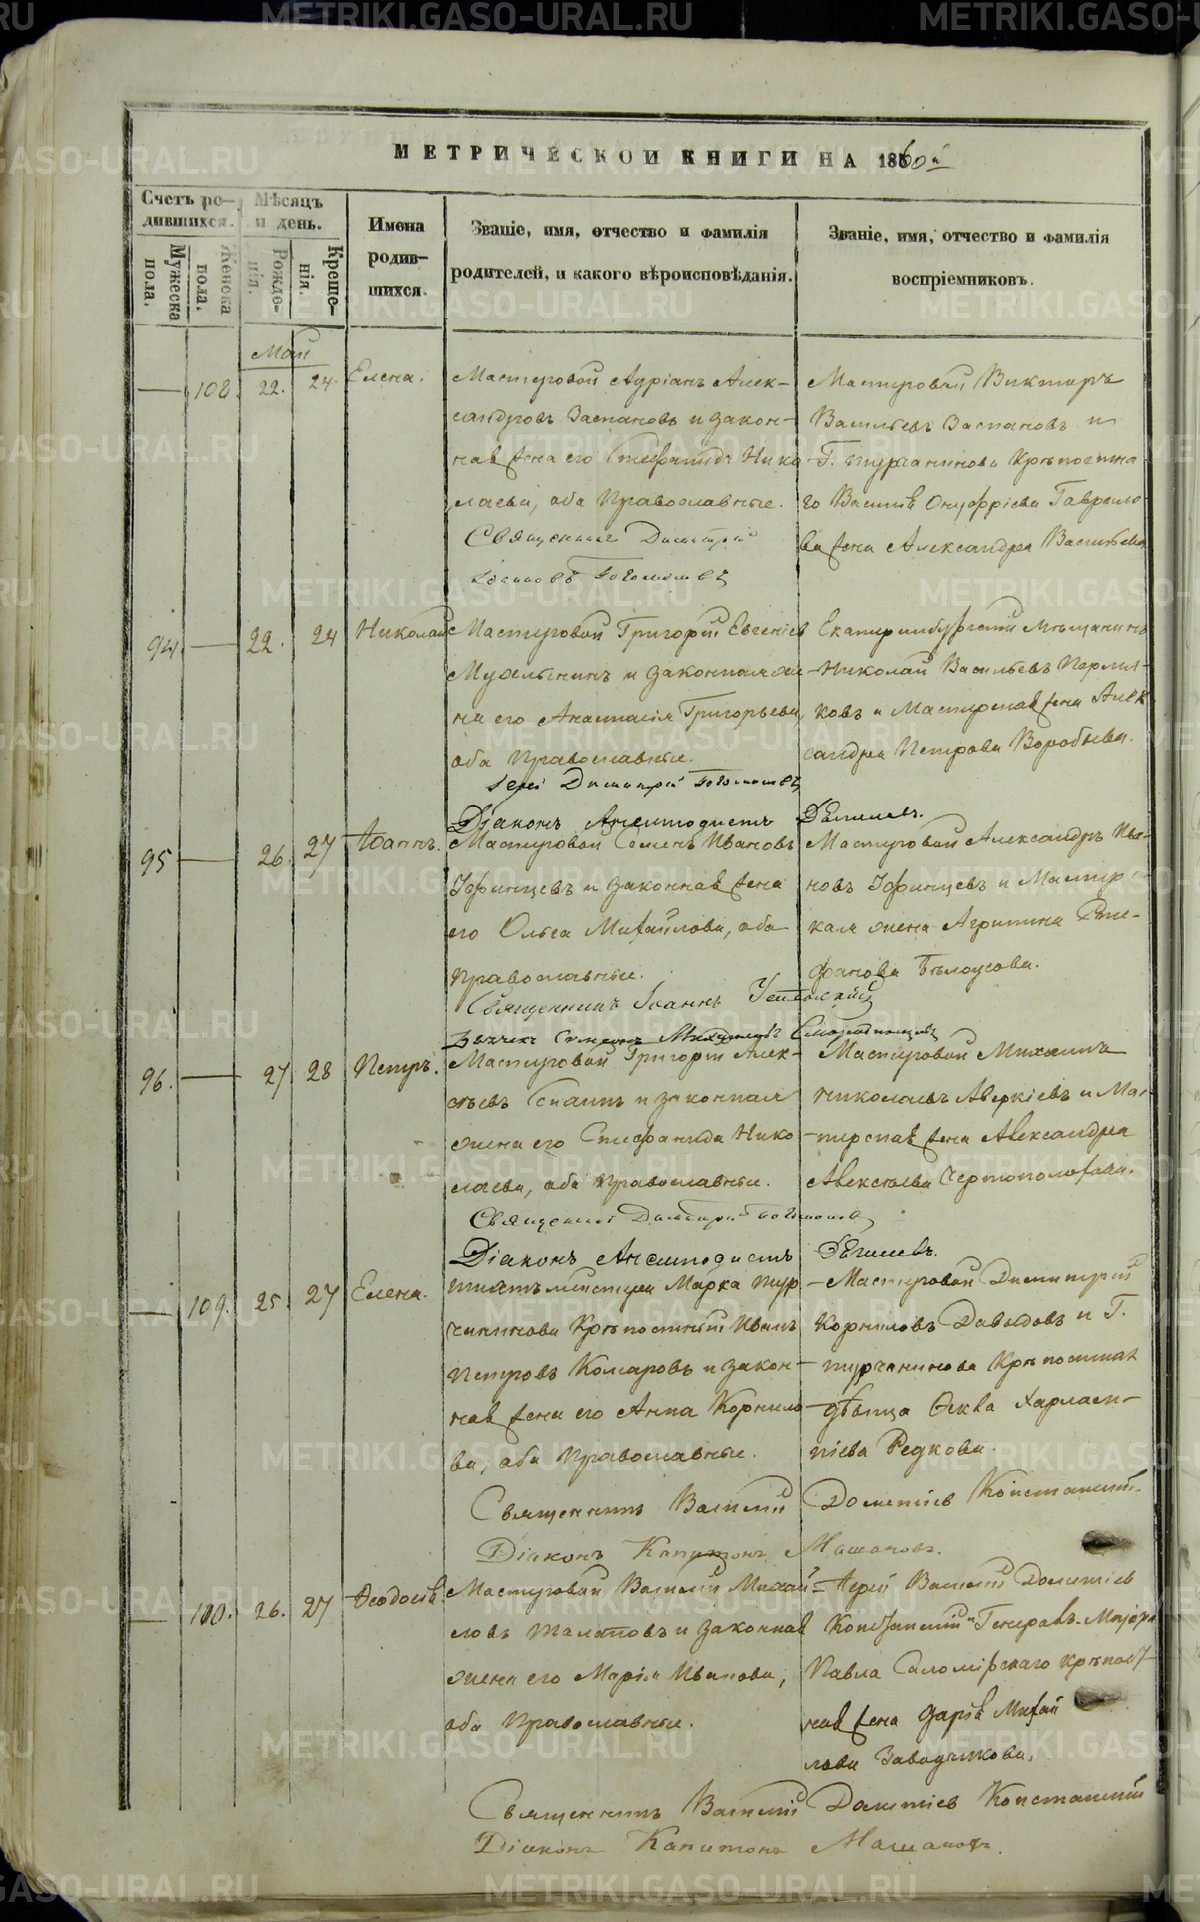 МЕТРИЧЕСКОЙ КНИГИ НА 1860й
Счетъ ро-
дившихся.
Мужеска
пола.
Женска
пола.
Мѣсяцъ
и день.
Рожде-
нія.
Креще-
нія.
Имена
родив-
шихся.
Званіе, имя, отчество и фамилія
родителей, и какого вѣроисповѣданія.
Званіе, имя, отчество и фамилія
воспріемниковъ.
Май
108. 22. 24. Елена.
Мастеровой Адріанъ Алек-
сандровъ и закон-
ная жена его Стефанида Нико
лаева, оба Православные.
Священникъ Димитрій
Мастеровой Викторъ
Васильевъ и
Г. Турчанинова Крѣпостна
го Василія Онуфріева Гаврило
ва жена Александра Васильева
94. 22. 24 Николай
Мастеровой Григорій Евгеніев
и законная же
на его Анастасія Григорьева,
оба Православные.
Іерей Димитрій
Діаконъ
Екатеринбургскій Мѣщанинъ
Николай Васильевъ Пермя-
ковъ и Мастерская жена Алек
сандра Петрова Воробьева.
95 26. 27 Іоаннъ.
Мастеровой Семенъ Ивановъ
и законная жена
его Ольга Михайлова, оба
Православные.
Священникъ Іоаннъ
Мастеровой Александръ Ива-
новъ и Мастер
ская жена Агрипина Епи-
фанова Бѣлоусова.
96. 27 28 Петръ.
Мастеровой Григорій Алек-
сѣевъ и законная
жена его Стефанида Нико
лаева, оба Православные.
Священникъ Димитрій
Діаконъ
Мастеровой Михаилъ
Николаевъ Аверкіевъ и Мас-
терская жена Александра
Алексѣева Чертополохова.
109. 25. 27 Елена.
Марка Тур
чанинова Крѣпостный Иванъ
Петровъ Комаровъ и закон-
ная жена его Анна Корнило
ва, оба Православные.
Священникъ Василій Дометіев
Діаконъ Капитонъ Машановъ.
Мастеровой Димитрій
Корниловъ Давыдовъ и Г.
Турчанинова Крѣпостная
дѣвица Ѳекла Харлам-
піева Редкова.
110. 26. 27 Ѳеодосія.
Мастеровой Василій Михай-
ловъ и законная
жена его Марія Иванова,
оба Православные.
Іерей Василій Дометіев
и Генералъ-Маіора
Павла Соломірскаго крѣпост
ная жена Дарія Михай
лова Заводчикова.
Священникъ Василій Дометіев
Діаконъ Капитонъ Машановъ.
METRIKI.GASO-URAL.RU